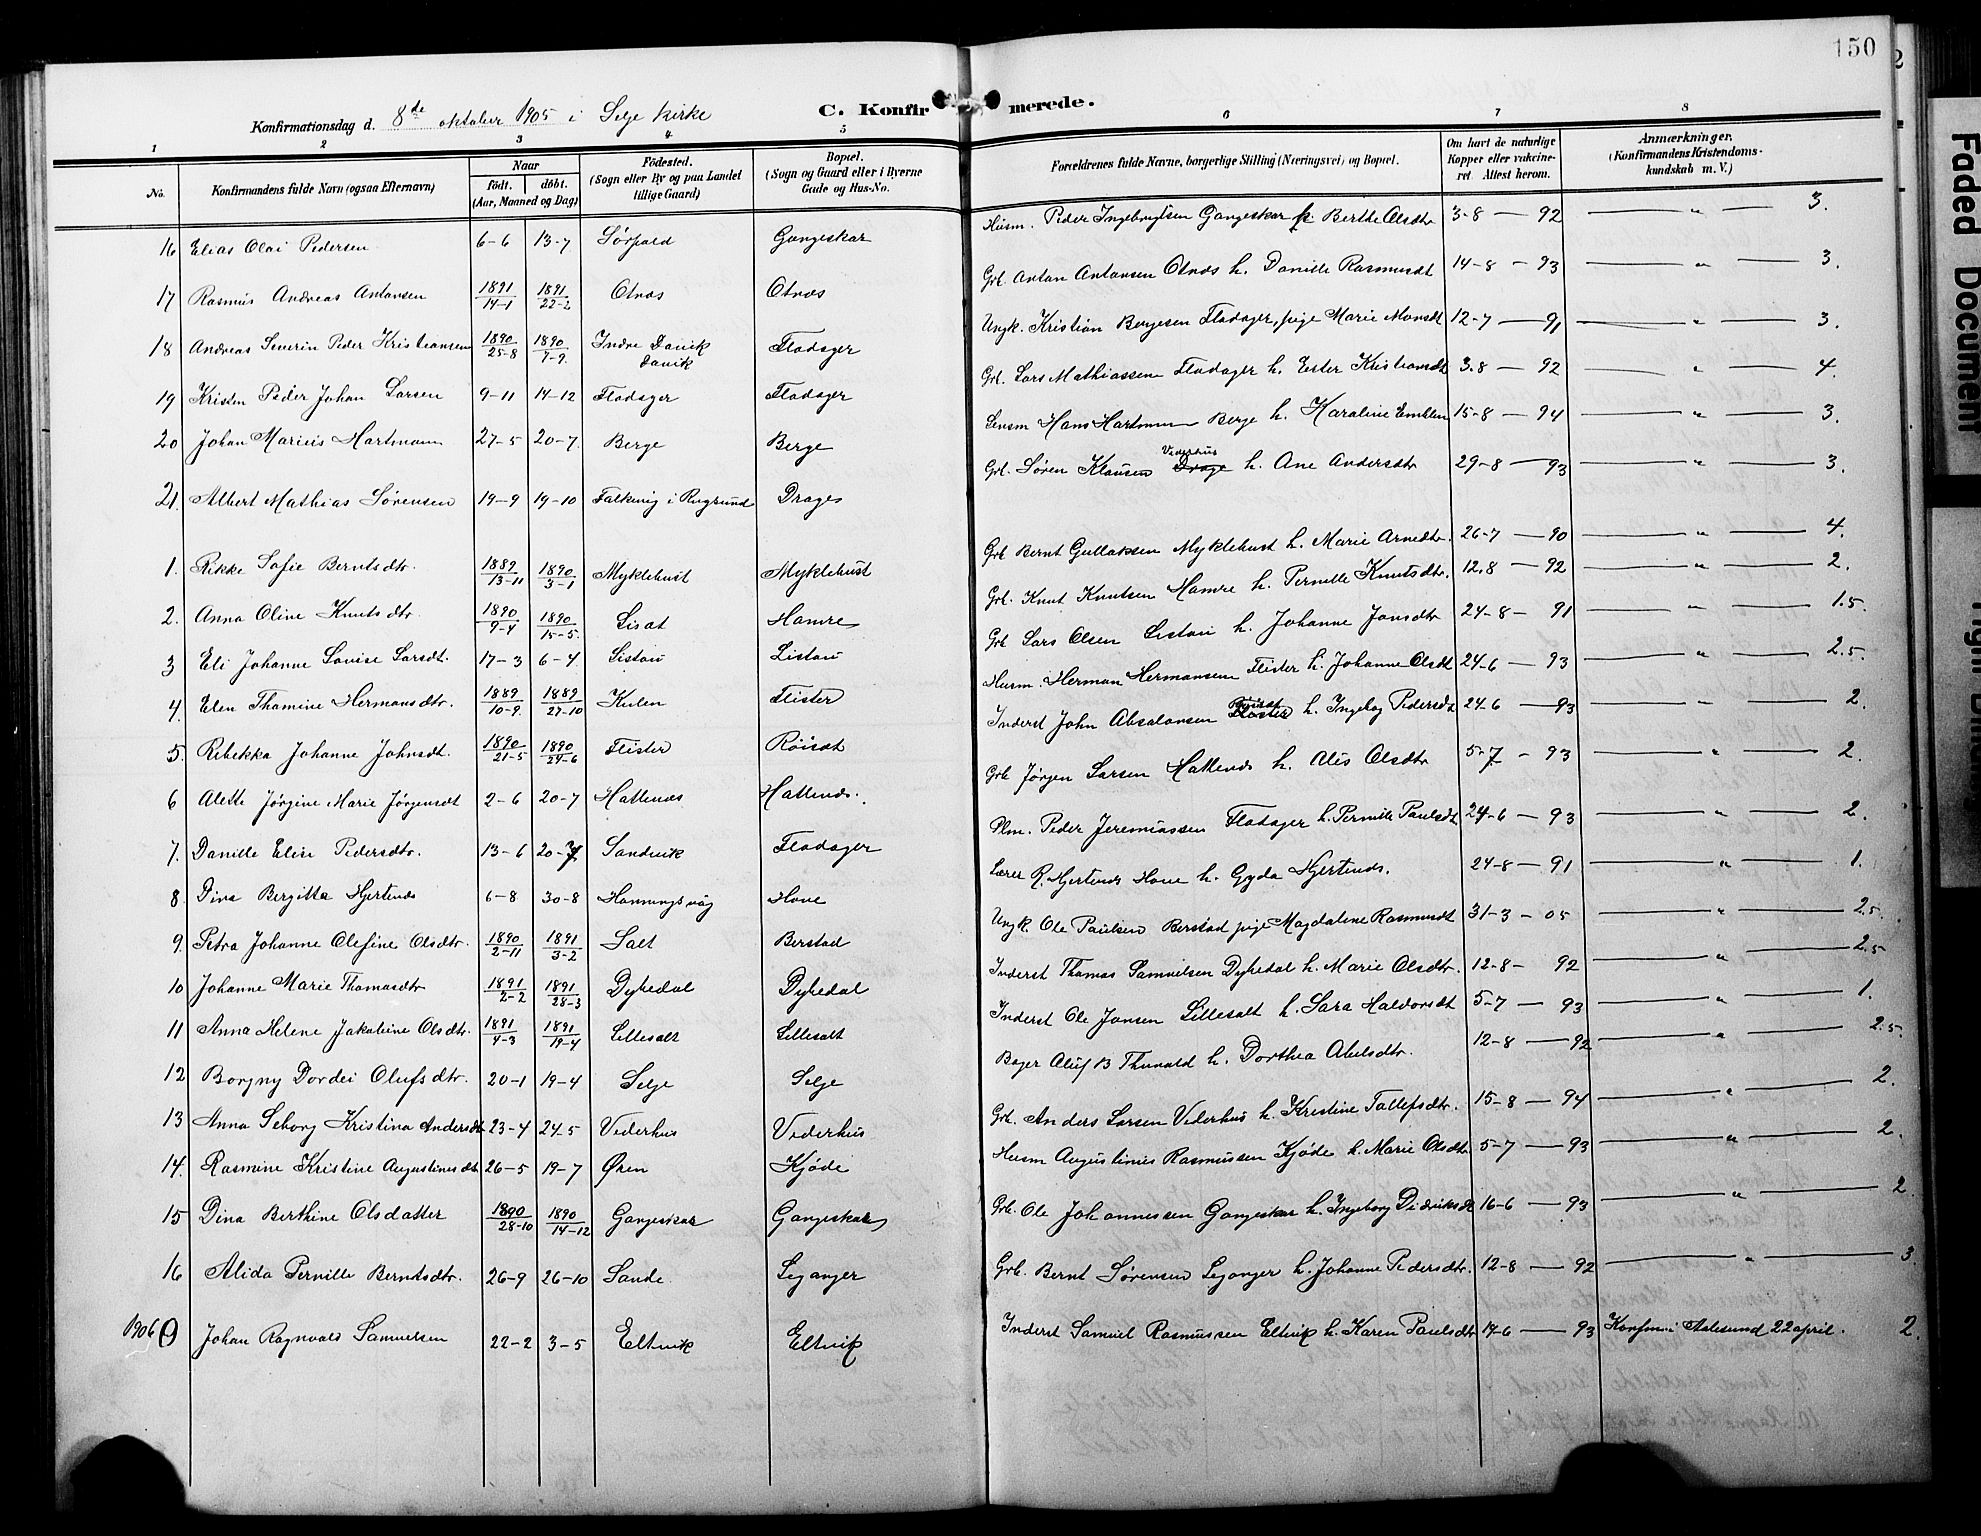 150
Konfirmationsdag d. 8de oktober 1905 i Selje kirke
C. Konfirmerede.
1 2 3 4 5 6 7 8
No.
Konfirmandens fulde Navn (ogsaa Efternavn)
Naar
født. døbt.
(Aar, Maaned og Dag)
Fødested.
(Sogn eller By og paa Landet
tillige Gaard)
Bopæl.
(Sogn og Gaard eller i Byerne
Gade og Hus-No.
Forældrenes fulde Navne, borgerlige Stilling (Næringsvei) og Bopæl.
Om havt de naturlige
Kopper eller vakcine-
ret Attest herom.
Anmærkninger.
(Konfirmandens Kristendoms-
kundskab m. V.)
16 Elias Olai Pedersen 6-6 13-7 Sørpold Gangeskar Husm. Peder Ingebrigtsen Gangeskar h. Berthe Olsdtr 3-8 — 92 — " — 3.
17 Rasmus Andreas Antonsen 1891 14-1 1891 22-2 Otnes Otnes Grb. Anton Antonsen Otnes h. Danille Rasmusdt 14-8 — 93 — " — 3.
18 Andreas Severin Peder Kristiansen 1890 25-8 1890 7-9 Indre Davik Davik Flodager Ungk. Kristian Børgesen Flodager, pige Marie Monsdt 12-7 — 91 — " — 3.
19 Kristen Peder Johan Larsen 9-11 14-12 Flodager Flodager Grb. Lars Mathiassen Flodager h. Ester Kristiansdt 3-8 — 92 — " — 4.
20 Johan Marius Hartmann 27-5 20-7 Berge Berge Lensm Hans Hartmann Berge h. Karoline Emblem 15-8 — 94 — " — 3.
21. Albert Mathias Sørensen 14-9 19-10 Falkevig i Rugsund Drages Grb. Søren Klausen Drage Vederhus h. Ane Andersdtr 29-8 — 93 — " — 3.
1. Rikke Sofie Berntsdtr. 1889 13-11 1890 3-1 Myklehust Myklehust Grb Bernt Gullaksen Myklehust h. Marie Arnedtr. 26-7 — 90 — " — 4.
2. Anna Oline Knutsdtr 1890 9-4 1890 15-5. Hamre Grb. Knut Knutsen Hamre h. Pernille Knutsdtr. 12.8 — 92 — " — 2.
3 Eli Johanne Lovise Larsdt. 17-3 6-4 Listau Listau Grb Lars Olsen Listau h. Johanne Jonsdtr 24-8 — 91 — " — 1.5.
4. Elen Thomine Hermansdtr. 1889 10-9. 1889 27-10 Kulen Flister Husm. Herman Hermansen Flister h. Johanne Olsdt 24-6 — 93 — " — 2.5.
5. Rebekka Johanne Johnsdt. 1890 21-5 1890 24-6 Flister Røisat Inderst John Absalonsen h. Ingebog Pedersdt 24-6 — 93 — " — 2.
6 Alette Jørgine Marie Jørgensdt 2-6 20-7 Hallenes Hallends. Grb Jørgen Larsen Hallends h. Alis Olsdtr 5-7 — 93 — " — 2
7. Danille Elise Pedersdtr. 13-6 20-7 Sandvik Flodager Plm. Peder Jeremiassen Flodager h. Pernille Paulsdt 24-6 — 93 — " — 2.
8. Dina Bergitta Hjertends 6-8 30-8 Honningsvåg Hove Lærer R. Hjertends Hove h. Gyda Hjertends. 24-8 — 91 — " — 1.
9. Petra Johanne Olefine Olsdtr. 1890 2-11 1891 3-2 Salt Berstad Ungk. Ole Paulsen Berstad pige Magdalene Rasmusdt 31-3 — 05 — " — 2.5.
10 Johanne Marie Thomasdtr 1891 2-2 1891 28-3 Dyhedal Dyhedal Inderst Thomas Samuelsen Dyhedal h. Marie Olsdtr. 12-8 — 92 — " — 2.5
11 Anna Helene Jakobine Olsdtr. 1891 4-3 1891 19-4 Lillesalt Lillesalt Inderst Ole Jonsen Lillesalt h. Sara Haldorsdt 5-7 — 93 — " — 1.
12 Borgny Dordei Olufsdtr. 20-1 19-4 Selje Selje Bager Oluf B Thunold h. Dorthea Abelsdtr. 12-8 — 92 — " — 2.5
13 Anna Seborg Kristina Andersdt 23-4 24-5 Vederhus Vederhus Grb. Anders Larsen Vederhus h. Kristine Tollefsdtr. 15-8 — 94 — " — 2.
14. Rasmine Kristine Augustinusdt 26-5 19-7 Øren Kjøde Husm Augustinus Rasmussen Kjøde h. Marie Olsdtr 5-7 — 93 — " — 2.
15 Dina Berthine Olsdatter 1890 28-10 1890 14-12 Gangeskar Gangeskar Grb. Ole Johannessen Gangeskar h. Ingeborg Didriksdt 16-6 — 93 — " — 2.
16 Alida Pernille Berntsdtr. 26-9 26-10 Sande. Leganger Grb. Bernt Sørensen Leganger h. Johanne Pedersdtr. 12-8 — 92 — " — 3.
1906 0 Johan Ragnvald Samuelsen 22-2 3-5 Eltvik Eltvik Inderst Samuel Rasmussen Eltvik h. Karen Paulsdtr 14-6 — 93 Konfm i Aalesund 22 april. 2.
Faded Document